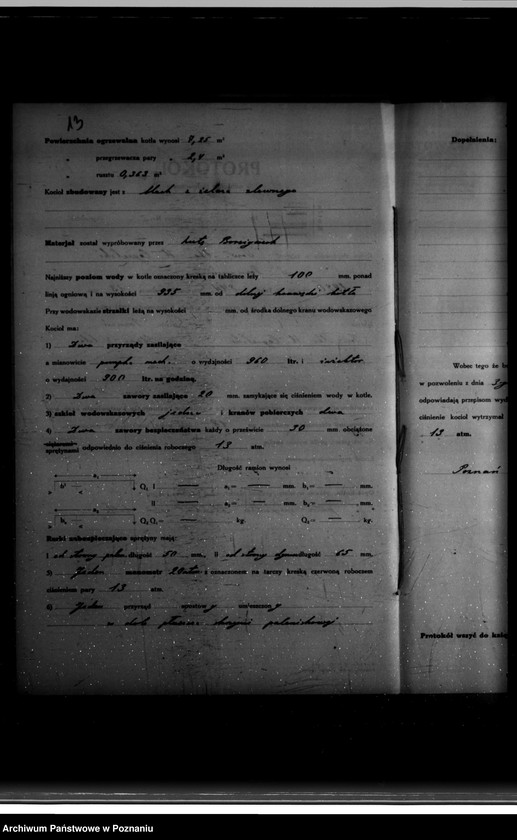 13
Powierzchnia ogrzewalna kotła wynosi 7,25 m²
„ przegrzewacza pary „ 2,4 m²
„ rusztu 0,363 m²
Kocioł zbudowany jest z blach z żelaza zlewnego
Materjał został wypróbowany przez hutę Borsigwerk
Najniższy poziom wody w kotle oznaczony kreską na tabliczce leży 100 mm. ponad
linją ogniową i na wysokości 935 mm. od dolnej krawędzi kotła
Przy wodowskazie strzałki leżą na wysokości mm. od środka dolnego kranu wodowskazowego
Kocioł ma:
1) Dwa przyrządy zasilające
a mianowicie pompę mech. o wydajności 960 ltr. i inżektor
o wydajności 900 ltr. na godzinę.
2) Dwa zawory zasilające 20 mm. zamykające się ciśnieniem wody w kotle.
3) szkieł wodowskazowych jedno i kranów probierczych dwa
4) Dwa zawory bezpieczeństwa każdy o prześwicie 30 mm. obciążone
sprężynami odpowiednio do ciśnienia roboczego 13 atm.
Długość ramion wynosi
a₁
b¹ Q₁ I — a₁= — mm. b₁= — mm.
II — a₂= — mm. b₂= — mm.
a₂
b₂ Q₂ Q₁= — kg. Q₂= — kg.
Rurki zabezpieczające sprężyny mają:
I od strony palen. długość 50 mm., II od strony dymn. długość 65 mm.
5) Jeden manometr 20 atm z oznaczonem na tarczy kreską czerwoną roboczem
ciśnieniem pary 13 atm.
6) Jeden przyrząd umieszczony
w dole płaszcza skrzyni paleniskowej.
Dopełnienia:
Wobec tego że
w pozwoleniu z dnia
odpowiadają przepisom
ciśnienie kocioł wytrzymał
13 atm.
Poznań
Protokół wszyć do
Archiwum Państwowe w Poznaniu